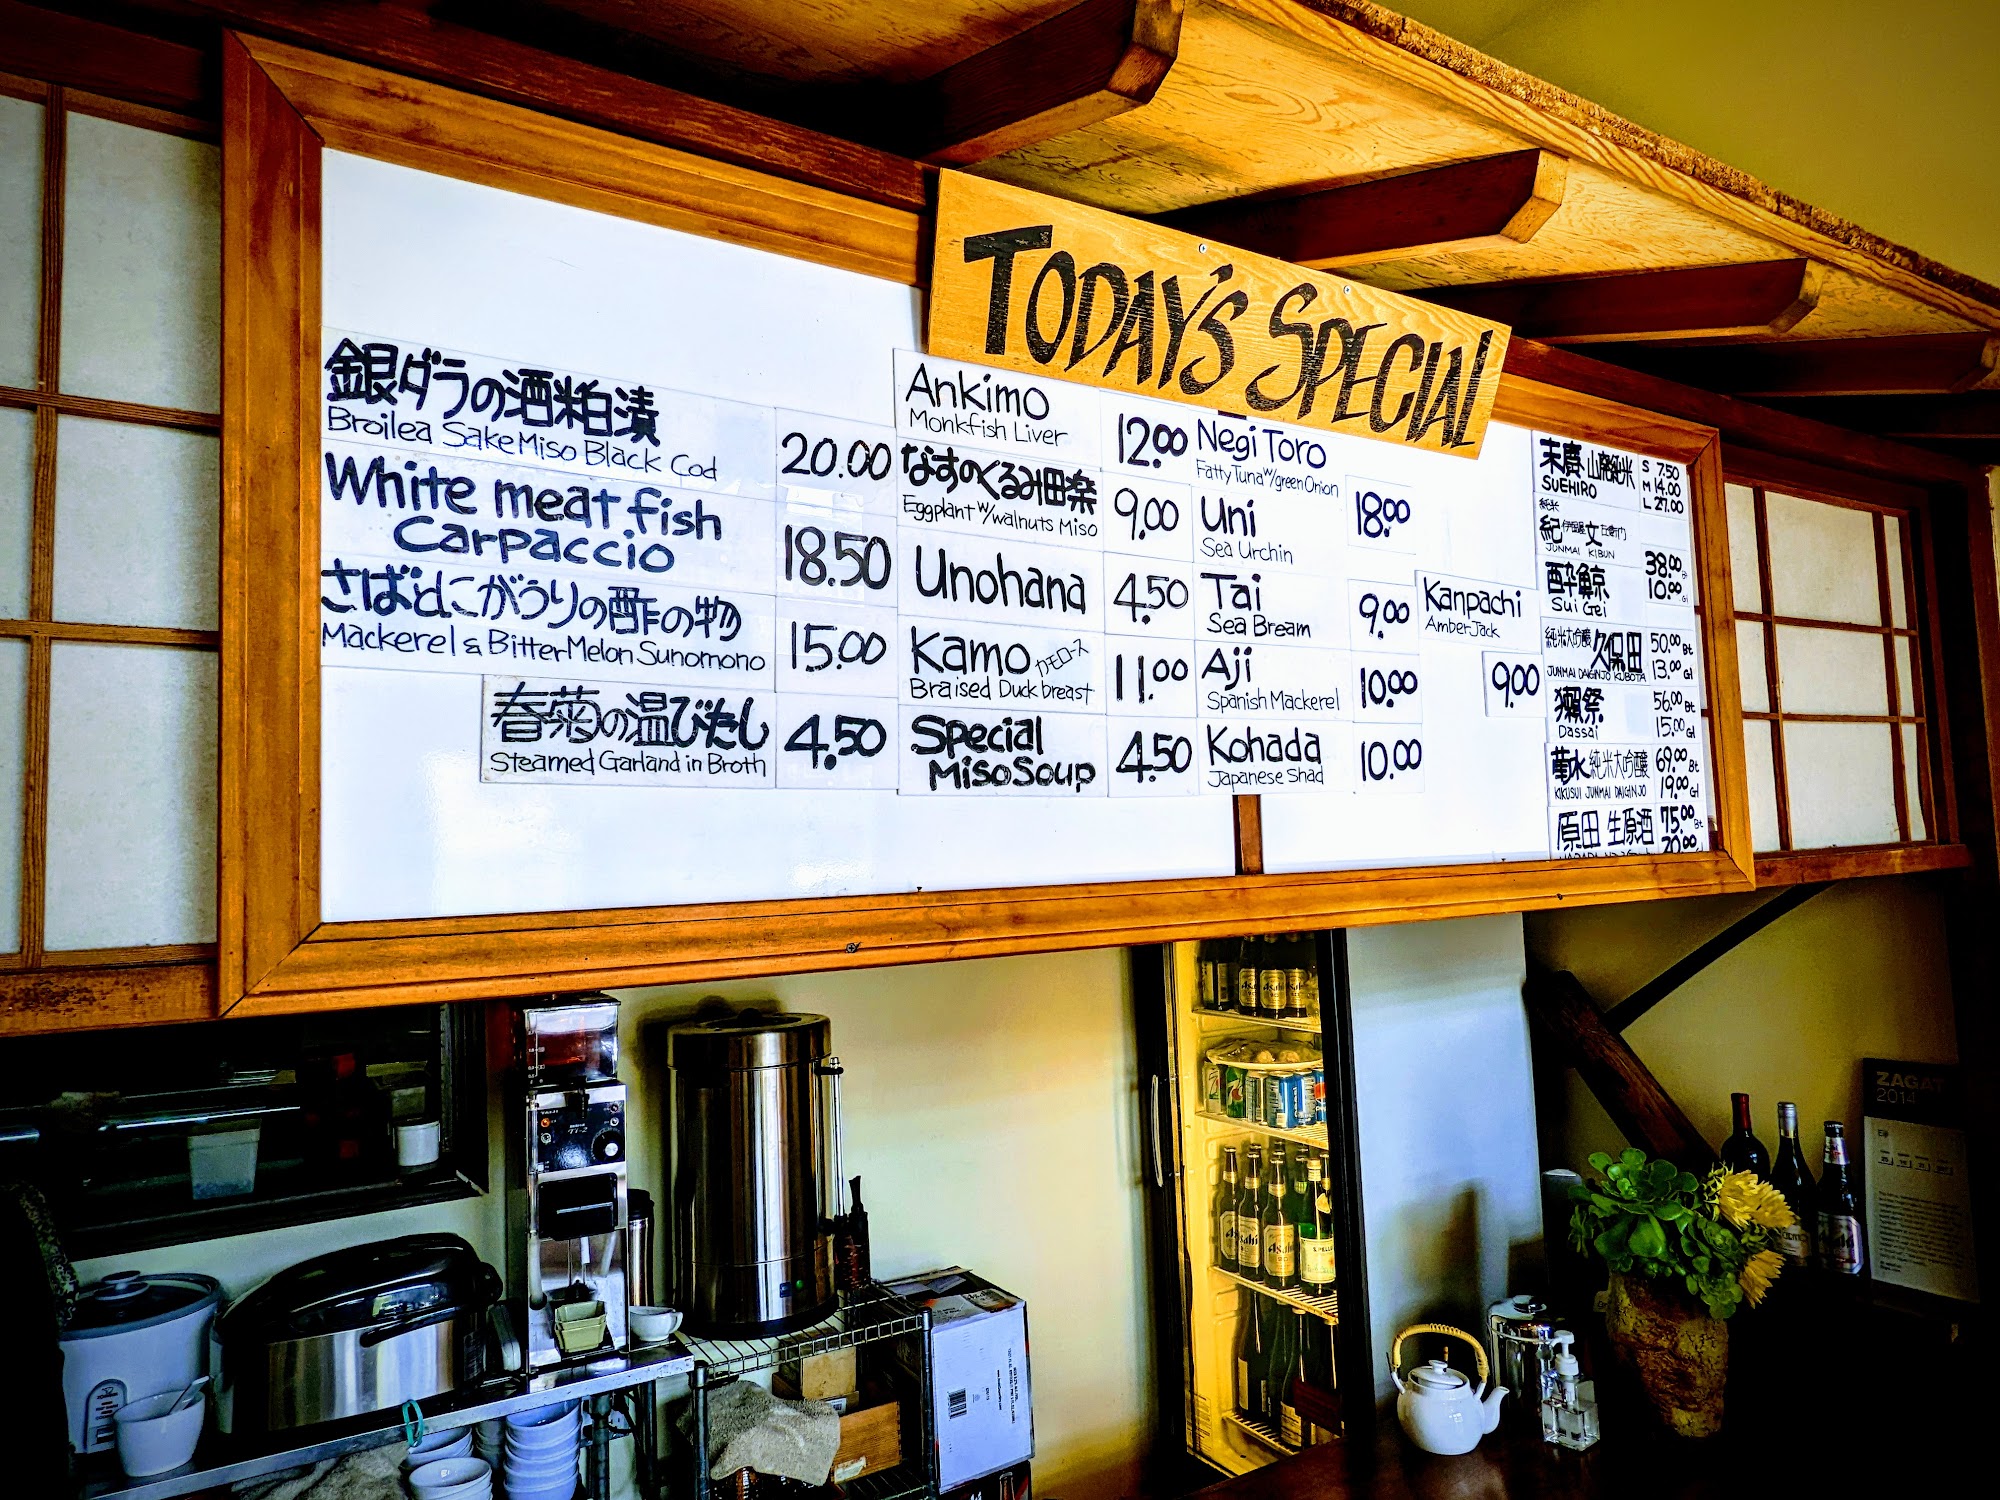 TODAY'S SPECIAL
銀ダラの酒粕漬
Broilea Sake Miso Black Cod
20.00
White meat fish
Carpaccio
18.50
さばとにがうりの酢の物
Mackerel & Bitter Melon Sunomono
15.00
春菊の温びたし
Steamed Garland in Broth
4.50
Ankimo
Monkfish Liver
12.00
なすのくるみ田楽
Eggplant w/walnuts Miso
9.00
Unohana
4.50
Kamo カモロース
Braised Duck breast
11.00
Special
Miso Soup
4.50
Negi Toro
Fatty Tuna w/green Onion
Uni
Sea Urchin
18.00
Tai
Sea Bream
9.00
Aji
Spanish Mackerel
10.00
Kohada
Japanese Shad
10.00
Kanpachi
Amber Jack
9.00
末廣 山廃純米
SUEHIRO
S 7.50
M 14.00
L 27.00
純米
紀伊国屋文左衛門
JUNMAI KIBUN
38.00
酔鯨
Sui Gei
10.00 Gl
純米大吟醸 久保田
JUNMAI DAIGINJO KUBOTA
50.00 Bt
13.00 Gl
獺祭
Dassai
56.00 Bt
15.00 Gl
菊水 純米大吟醸
KIKUSUI JUNMAI DAIGINJO
69.00 Bt
19.00 Gl
原田 生原酒
75.00 Bt
20.00
ZAGAT
2014
Asahi
Asahi
TAIJI